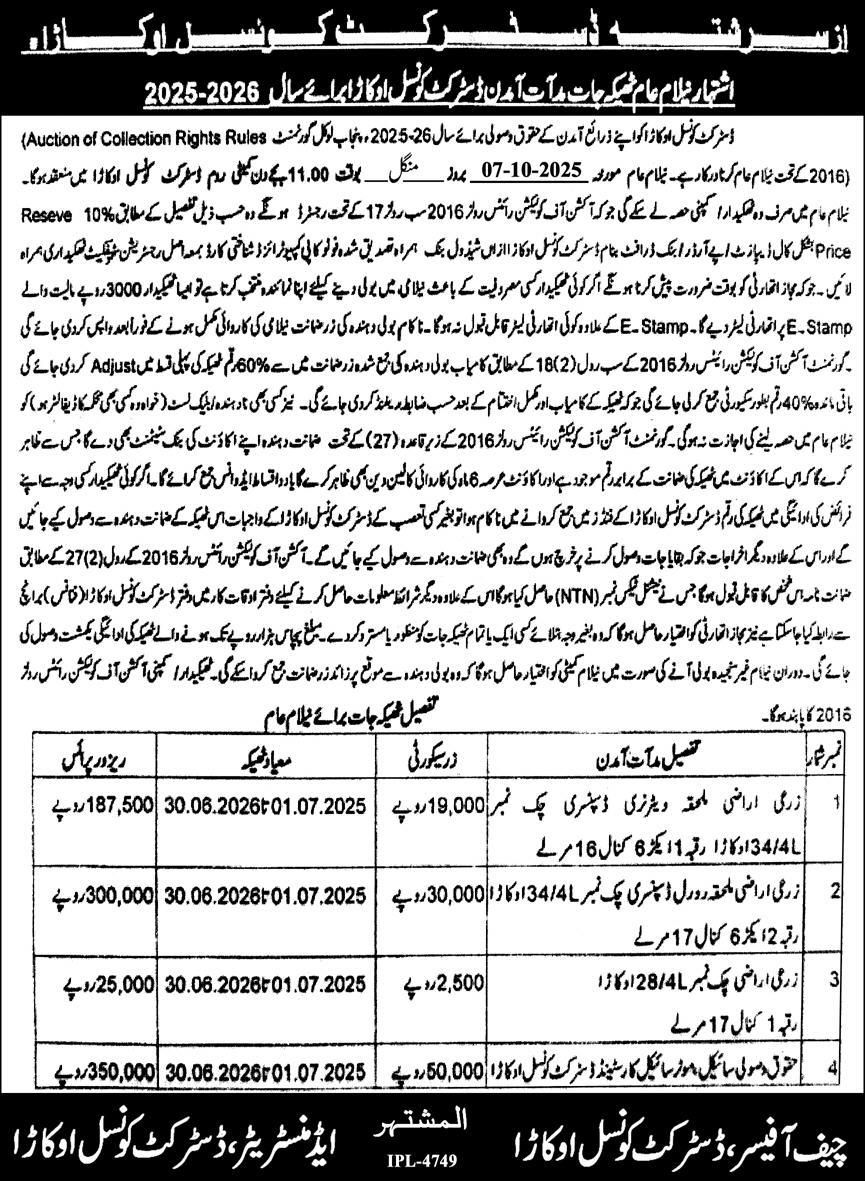 از سرشتہ ڈسٹرکٹ کونسل اوکاڑہ
اشتہار نیلام عام ٹھیکہ جات مدآت آمدن ڈسٹرکٹ کونسل اوکاڑا برائے سال 2025-2026
ڈسٹرکٹ کونسل اوکاڑا کو اپنے ذرائع آمدن کے حقوق وصولی برائے سال 26-2025ء پنجاب لوکل گورنمنٹ Auction of Collection Rights Rules)
(2016 کے تحت نیلام عام کرنا درکار ہے۔ نیلام عام مورخہ 07-10-2025 بروز منگل بوقت 11.00 بجے دن کمیٹی روم ڈسٹرکٹ کونسل اوکاڑا میں منعقد ہوگا۔
نیلام عام میں صرف وہ ٹھیکیدار/کمپنی حصہ لے سکے گی جو کہ آکشن آف کولیکشن رائٹس رولز 2016 سب رولز 17 کے تحت رجسٹرڈ ہونگے وہ حسب ذیل تفصیل کے مطابق 10% Reseve
Price بشکل کال ڈیپازٹ/پے آرڈر/بنک ڈرافٹ بنام ڈسٹرکٹ کونسل اوکاڑا ازاں شیڈول بنک ہمراہ تصدیق شدہ فوٹو کاپی کمپیوٹرائزڈ شناختی کارڈ بمعہ اصل رجسٹریشن سرٹیفکیٹ ٹھیکیداری ہمراہ
لائیں۔ جو کہ مجاز اتھارٹی کو بوقت ضرورت پیش کرنا ہونگے اگر کوئی ٹھیکیدار کسی مصروفیت کے باعث نیلامی میں بولی دینے کیلئے اپنا نمائندہ منتخب کرتا ہے تو ایسا ٹھیکیدار 3000 روپے مالیت والے
E-Stamp پر اتھارٹی لیٹر دے گا۔ E-Stamp کے علاوہ کوئی اتھارٹی لیٹر قابل قبول نہ ہوگا۔ ناکام بولی دہندہ کی زر ضمانت نیلامی کی کاروائی مکمل ہونے کے فوراً بعد واپس کر دی جائے گی
۔ گورنمنٹ آکشن آف کولیکشن رائیٹس رولز 2016 کے سب رول (2)18 کے مطابق کامیاب بولی دہندہ کی جمع شدہ زر ضمانت میں سے 60% رقم ٹھیکہ کی پہلی قسط میں Adjust کر دی جائے گی
باقی ماندہ 40% رقم بطور سکیورٹی جمع کر لی جائے گی جو کہ ٹھیکہ کے کامیاب اور مکمل اختتام کے بعد حسب ضابطہ ریفنڈ کر دی جائے گی۔ نیز کسی بھی نادہندہ/بلیک لسٹ (خواہ وہ کسی بھی محکمہ کا ڈیفالٹر ہو) کو
نیلام عام میں حصہ لینے کی اجازت نہ ہوگی۔ گورنمنٹ آکشن آف کولیکشن رائیٹس رولز 2016 کے زیر قاعدہ (27) کے تحت ضمانت دہندہ اپنے اکاؤنٹ کی بنک سٹیٹمنٹ بھی دے گا جس سے ظاہر
کرے گا کہ اس کے اکاؤنٹ میں ٹھیکہ کی ضمانت کے برابر رقم موجود ہے اور اکاؤنٹ عرصہ 6 ماہ کی کاروائی کا لین دین بھی ظاہر کرے گا یا دو اقساط ایڈوانس جمع کرائے گا۔ اگر کوئی ٹھیکیدار کسی وجہ سے اپنے
فرائض کی ادائیگی میں ٹھیکہ کی رقم ڈسٹرکٹ کونسل اوکاڑا کے فنڈز میں جمع کروانے میں ناکام ہوا تو بغیر کسی تعصب کے ڈسٹرکٹ کونسل اوکاڑا کے واجبات اس ٹھیکہ کے ضمانت دہندہ سے وصول کیے جائیں
گے اور اس کے علاوہ دیگر اخراجات جو کہ بقایا جات وصول کرنے پر خرچ ہوں گے وہ بھی ضمانت دہندہ سے وصول کیے جائیں گے۔ آکشن آف کولیکشن رائیٹس رولز 2016 کے رول (2)27 کے مطابق
ضمانت نامہ اس شخص کا قابل قبول ہوگا جس نے نیشنل ٹیکس نمبر (NTN) حاصل کیا ہوگا اس کے علاوہ دیگر شرائط معلومات حاصل کرنے کیلئے دفتر اوقات کار میں دفتر ڈسٹرکٹ کونسل اوکاڑا (فنانس) برانچ
سے رابطہ کیا جاسکتا ہے نیز مجاز اتھارٹی کو اختیار حاصل ہوگا کہ وہ بغیر وجہ بتلائے کسی ایک یا تمام ٹھیکہ جات کو منظور یا مسترد کر دے۔ مبلغ پچاس ہزار روپے تک ہونے والے ٹھیکہ کی ادائیگی یکمشت وصول کی
جائے گی۔ دوران نیلام غیر سنجیدہ بولی آنے کی صورت میں نیلام کمیٹی کو اختیار حاصل ہوگا کہ وہ بولی دہندہ سے موقع پر زائد زر ضمانت جمع کروا سکے گی۔ ٹھیکیدار/کمپنی آکشن آف کولیکشن رائٹس رولز
2016 کا پابند ہوگا۔
تفصیل ٹھیکہ جات برائے نیلام عام
نمبر شمار تفصیل مدآت آمدن زر سیکورٹی معیاد ٹھیکہ ریزور پرائس
1 زرعی اراضی ملحقہ ویٹرنری ڈسپنسری چک نمبر 19,000 روپے 01.07.2025 تا 30.06.2026 187,500 روپے
34/4L اوکاڑا رقبہ 1 ایکڑ 6 کنال 16 مرلے
2 زرعی اراضی ملحقہ رورل ڈسپنسری چک نمبر 34/4L اوکاڑا 30,000 روپے 01.07.2025 تا 30.06.2026 300,000 روپے
رقبہ 2 ایکڑ 6 کنال 17 مرلے
3 زرعی اراضی چک نمبر 28/4L اوکاڑا 2,500 روپے 01.07.2025 تا 30.06.2026 25,000 روپے
رقبہ 1 کنال 17 مرلے
4 حقوق وصولی سائیکل، موٹر سائیکل کار سٹینڈ ڈسٹرکٹ کونسل اوکاڑا 50,000 روپے 01.07.2025 تا 30.06.2026 350,000 روپے
المشتہر
چیف آفیسر، ڈسٹرکٹ کونسل اوکاڑا ایڈمنسٹریٹر، ڈسٹرکٹ کونسل اوکاڑا
IPL-4749